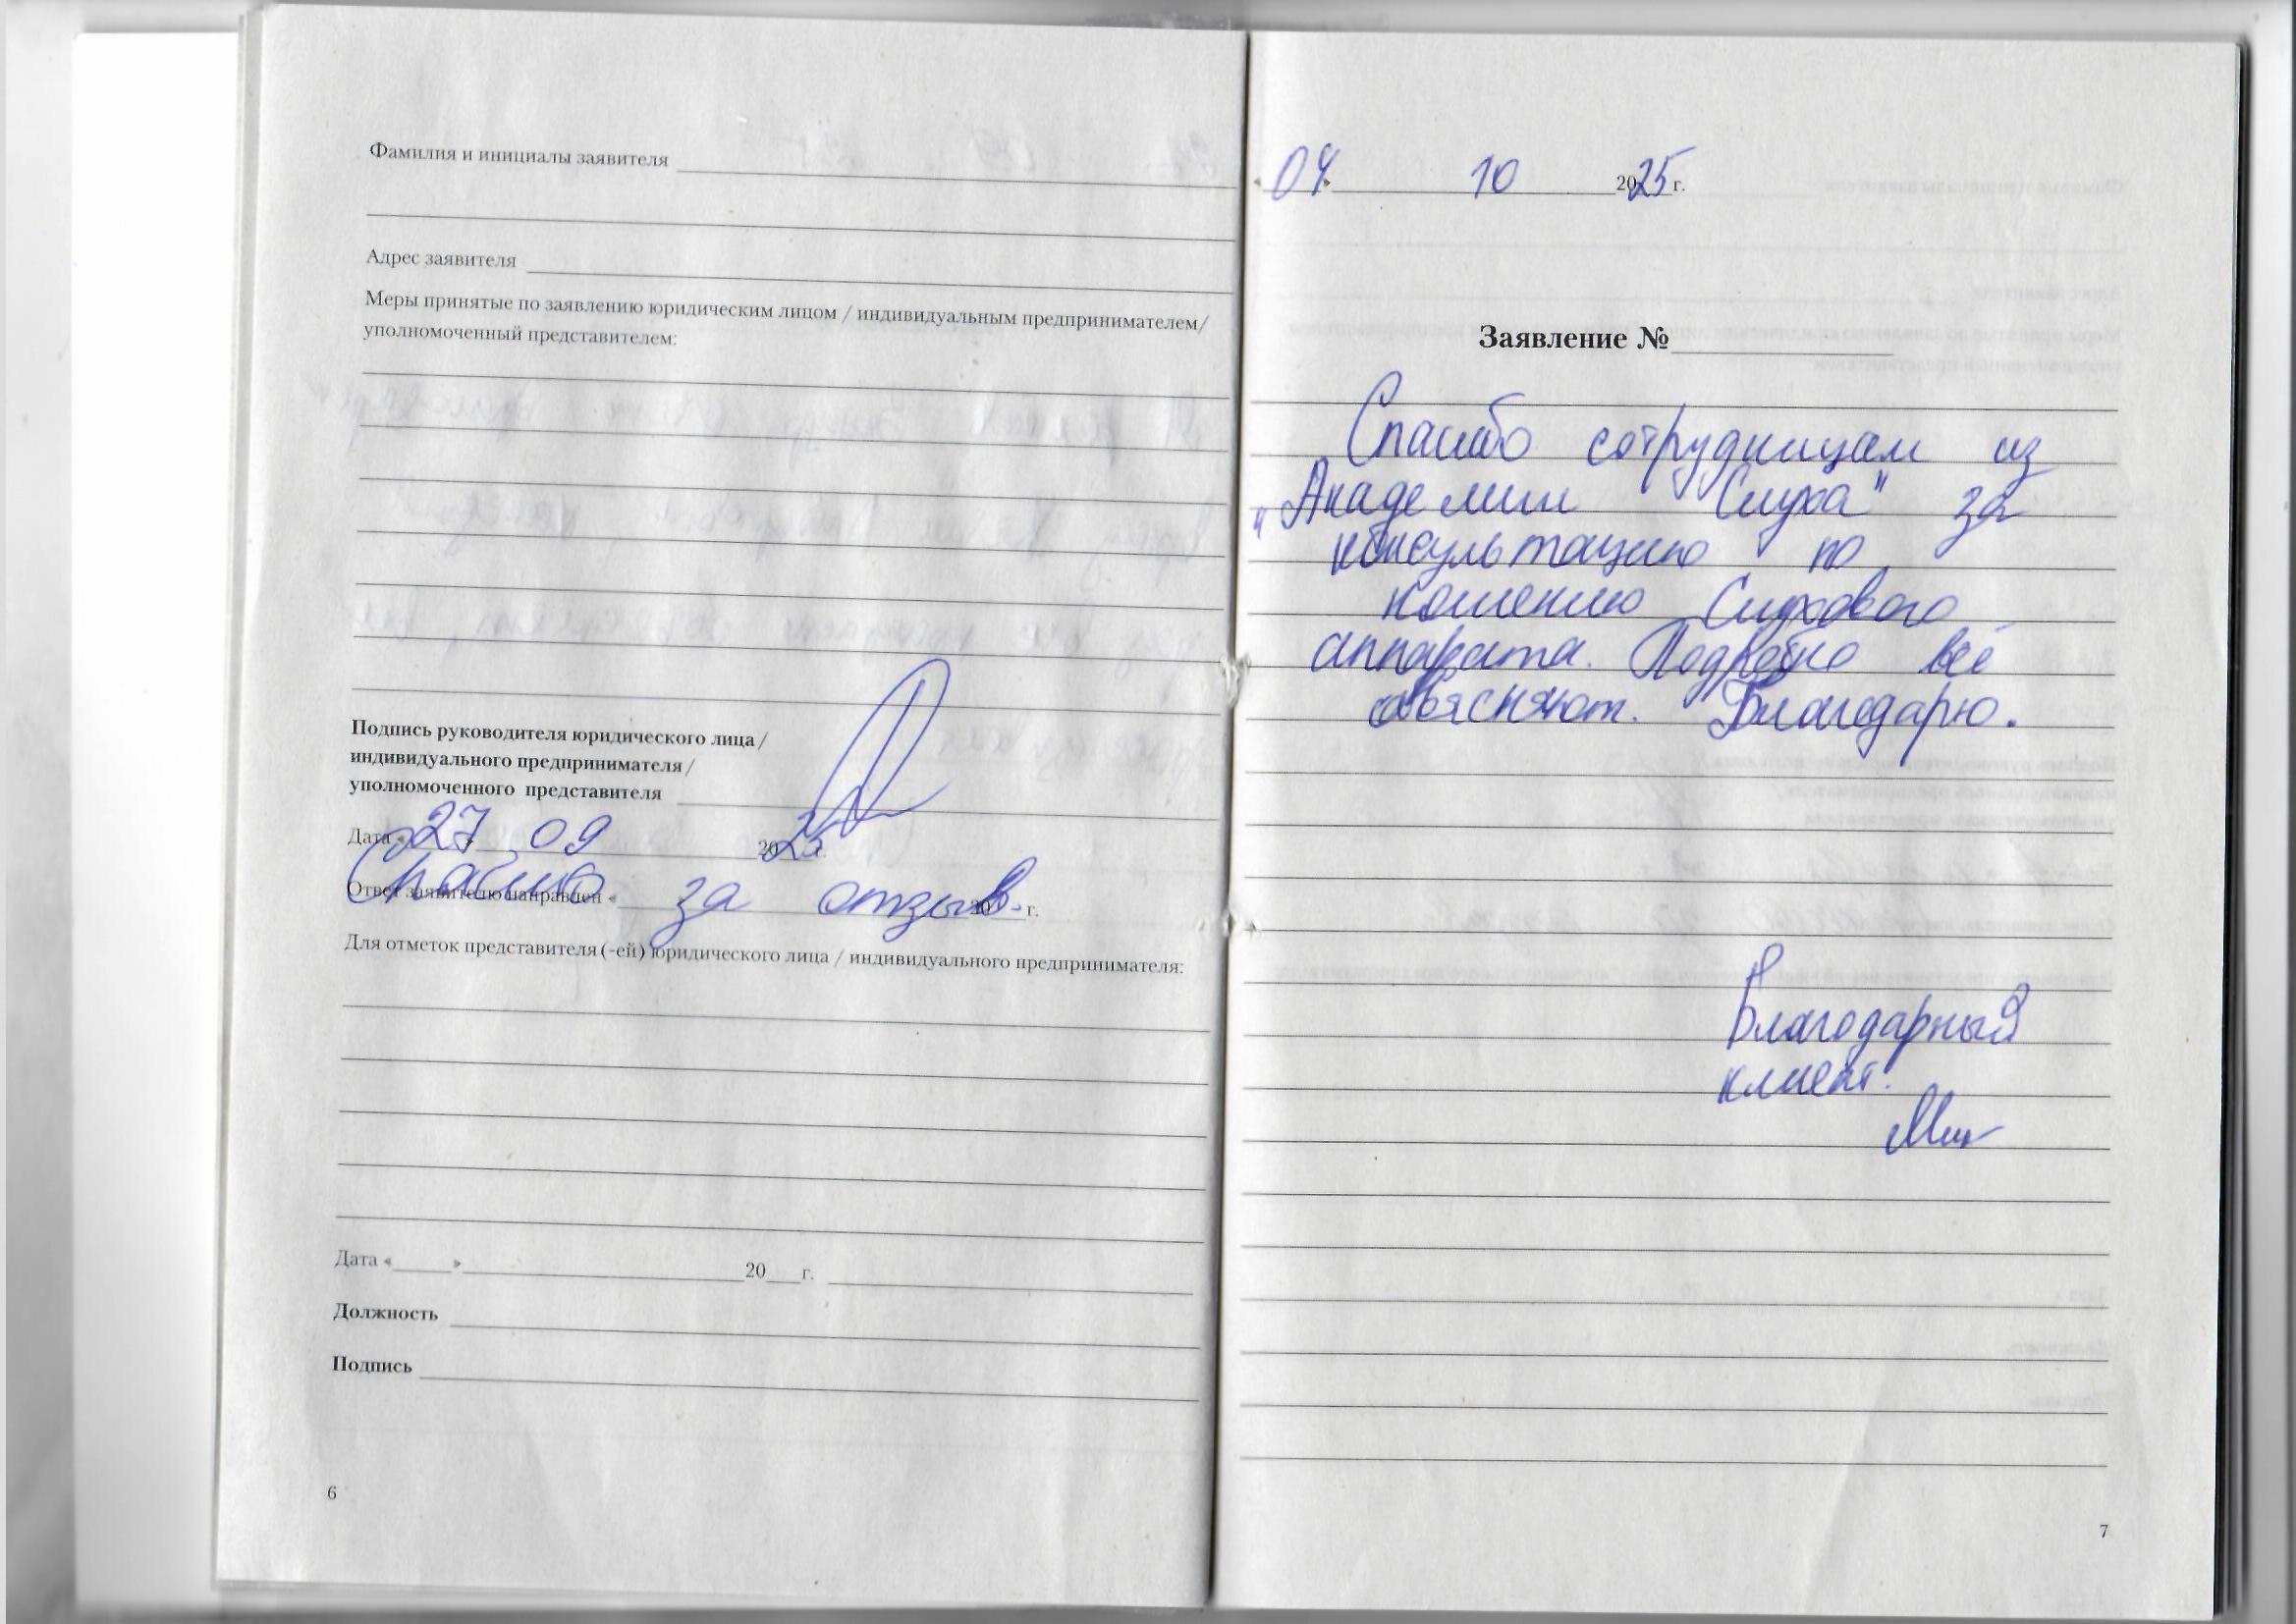 Фамилия и инициалы заявителя
Адрес заявителя
Меры принятые по заявлению юридическим лицом / индивидуальным предпринимателем/
уполномоченный представителем:
Подпись руководителя юридического лица /
индивидуального предпринимателя /
уполномоченного представителя
Дата « 27 » 09 2025 г.
Ответ заявителю направлен « 20 г.
Спасибо за отзыв.
Для отметок представителя (-ей) юридического лица / индивидуального предпринимателя:
Дата « » 20 г.
Должность
Подпись
6
« 04 » 10 2025 г.
Заявление №
Спасибо сотрудницам из
"Академии Слуха" за
консультацию по
ношению Слухового
аппарата. Подробно всё
объясняют. Благодарю.
Благодарный
клиент.
7